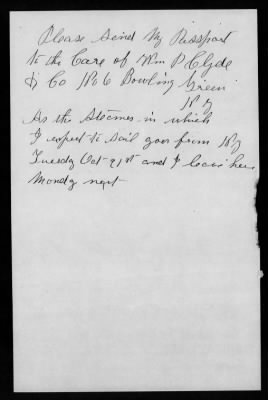 Please Send My Passport
to the Care of Wm P Clyde
& Co No 6 Bowling Green
N Y
As the Steamer in which
I expect to sail goes from N Y
Tuesday Oct 21st and I leave here
Monday next